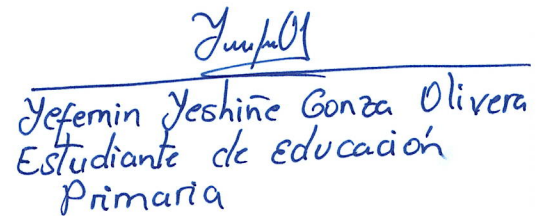 Yefemin Yeshiñe Gonza Olivera
Estudiante de educación
Primaria